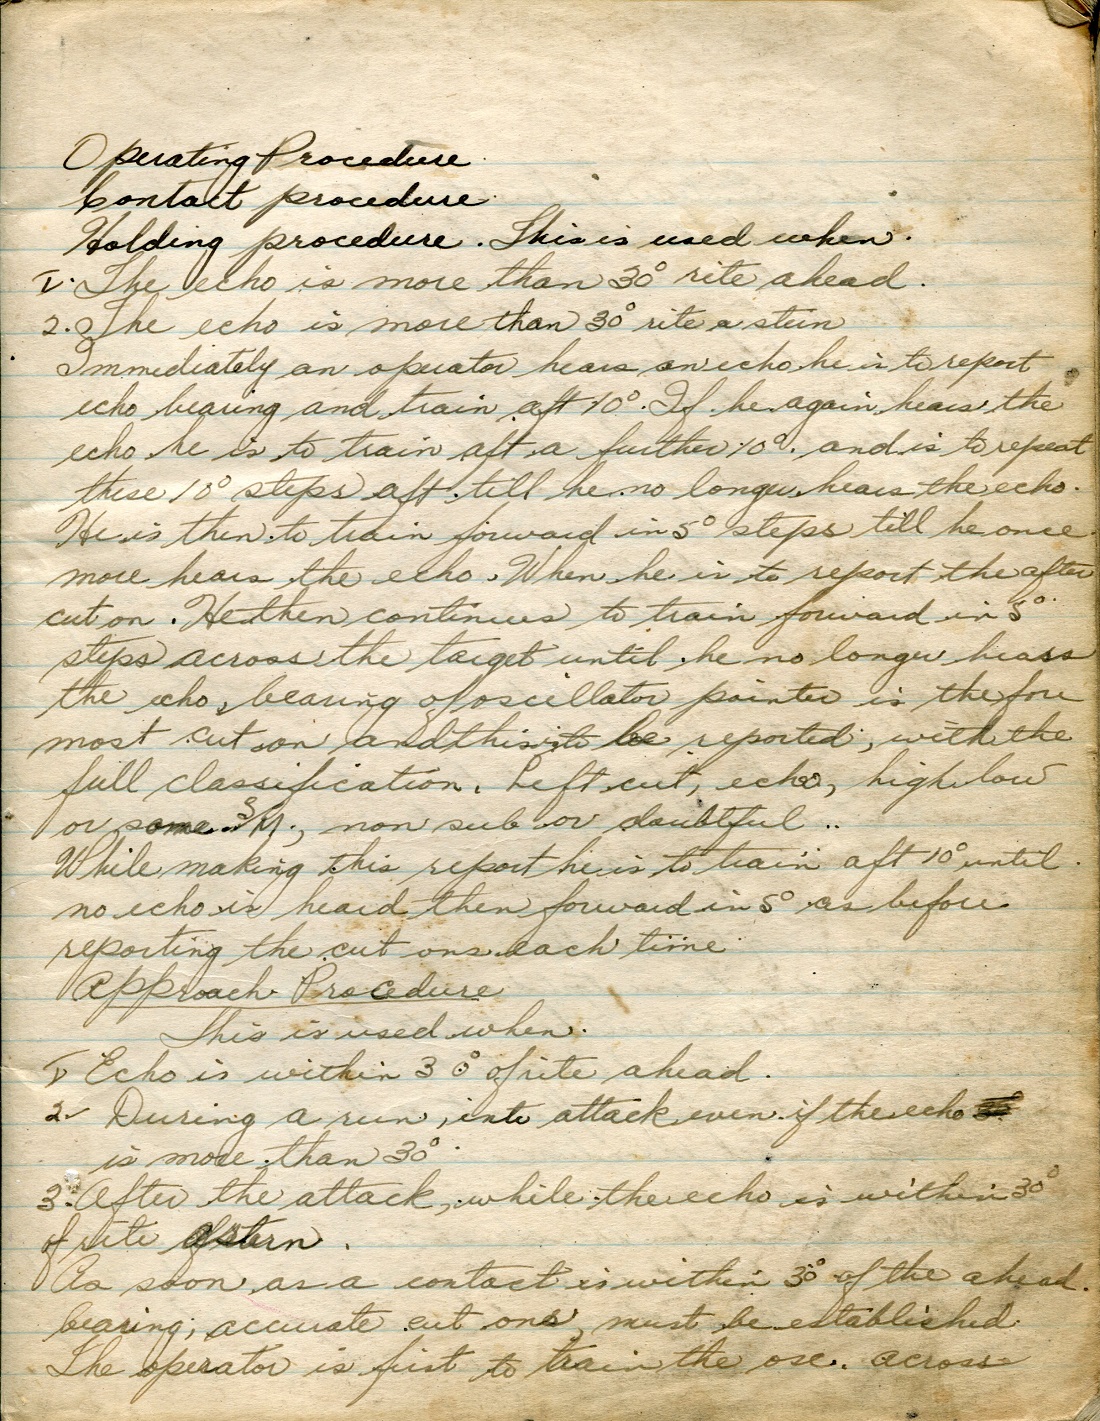 Operating Procedure
Contact procedure
Holding procedure. This is used when.
1. The echo is more than 30° rite ahead.
2. The echo is more than 30° rite a stern
Immediately an operator hears an echo he is to report
echo bearing and train aft 10°. If he again hears the
echo he is to train aft a further 10°. and is to repeat
these 10° steps aft till he no longer hears the echo.
He is then to train forward in 5° steps till he once
more hears the echo. When he is to report the after
cut on. He then continues to train forward in 5°
steps across the target until he no longer hears
the echo, bearing of oscillator pointer is the fore
most cut on and this is to be reported, with the
full classification. Left cut, echo, high low
or same S/M., non sub or doubtful ..
While making this report he is to train aft 10° until
no echo is heard then forward in 5° as before
reporting the cut ons each time
Approach Procedure
This is used when.
1. Echo is within 30° of rite ahead.
2. During a run, into attack even if the echo
is more than 30°.
3. After the attack, while the echo is within 30°
of rite astern.
As soon as a contact is within 30° of the ahead.
bearing, accurate cut ons, must be established
The operator is first to train the osc. across